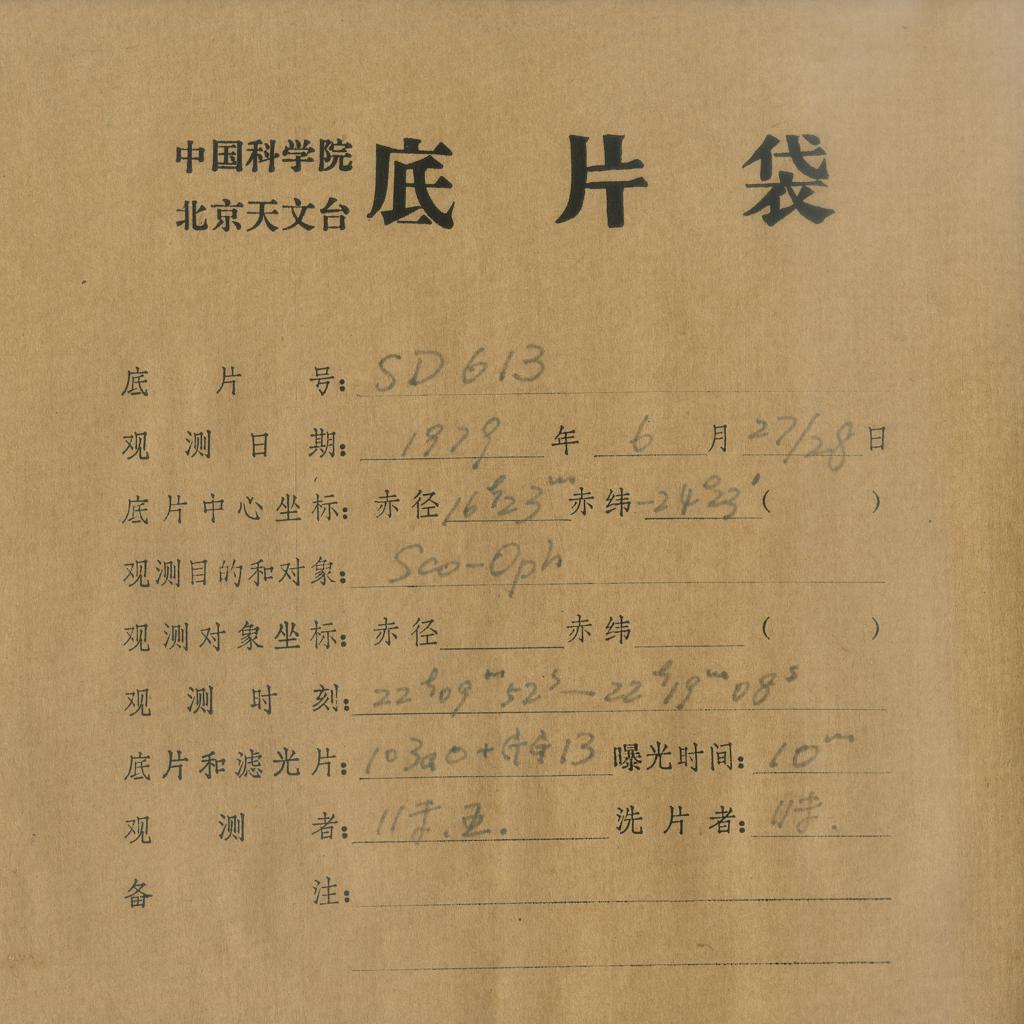 中国科学院
北京天文台
底片袋
底片号: SD 613
观测日期: 1979年 6月 27/28日
底片中心坐标: 赤径 16h23m 赤纬 -24°23′ ( )
观测目的和对象: Sco-Oph
观测对象坐标: 赤径 赤纬 ( )
观测时刻: 22h09m52s—22h19m08s
底片和滤光片: 103aO+GG13 曝光时间: 10m
观测者: 洗片者:
备注: